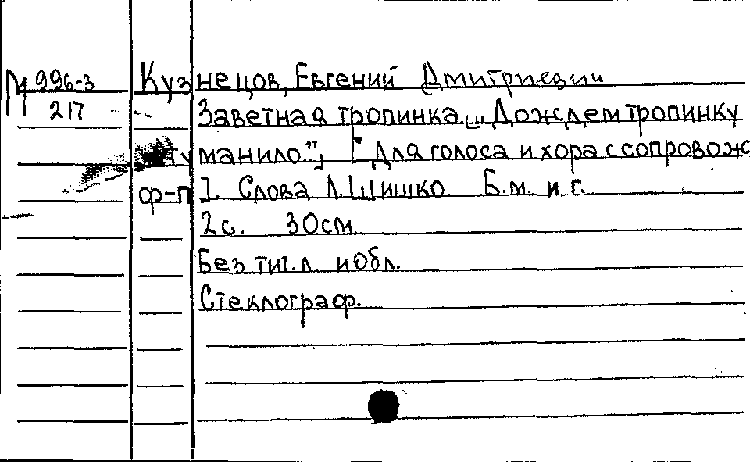 М 996-3
217
Кузнецов, Евгений Дмитриевич
Заветная тропинка „Дождем тропинку
манило."; [Для голоса и хора с сопровожд
ф-п]. Слова Л. Шишко Б.м. и г.
2 с. 30 см
Без тит. л. и обл.
Стеклограф.